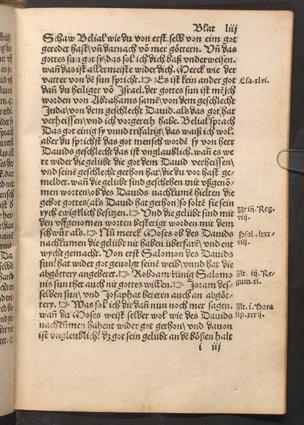 Blat liij
Schaw Belial wie du von erst. selb von eim got
geredet hast. vñ darnach võ mer göttern. Vñ das
gottes sun got sy. das sol ich dich baß vnderweisen.
wañ das ist allermeist wider dich. Merck wie der
vatter von de sun spricht. Es ist kein ander got
Esa. xlvi.
dañ du heiliger võ Israel. der gottes sun ist mẽsch
worden von Abrahams samẽ. von dem geschlecht
Juda. von dem geschlecht David. als das got hat
verheissen. vnd ich vorgeredt habe. Belial sprach
Das got einig sy vnnd trifaltig. das waiß ich wol.
aber du sprichst das got mensch worde sy von herr
Davids geschlecht das ist vnglaublich. wañ es we
re wider die gelübt die got dem David verheissen.
vnd seinẽ geschlechte gethon hat. die du vor hast ge
melder. wañ die gelübd sind geschehen mit vßgenõ
men worten. ob des Davids nachkumẽ hielten die
gebot gottes. als David hat gethon. so soltẽ sie sein
rych ewigklich besitzen. Vnd die gelübt sind mit
den vßgenomen worten bestetiget worden mit dem
schwür als. Nü merck Moses ob des Davids
nachkumen die gelübt nit haben überfarẽ. vnd ent
wycht gemacht. Von erst Salomon des Davids
sun. hat wider got gevolget seinẽ weib. vnnd hat die
abgöttery angebettet. Roboam künig Salomo
nis sun thet auch nit gottes willen. Joram des-
selben sun. vnd Josaphat betetten auch an abgöt-
tery. Was sol ich dir dañ nun noch mer sagen.
wañ du Moses weist selber wol wie des Davids
nachkũmen habent wider got gethon. vnd davon
ist vnglenblich. dz got sein gelübt an dẽ bößen halt
i iij